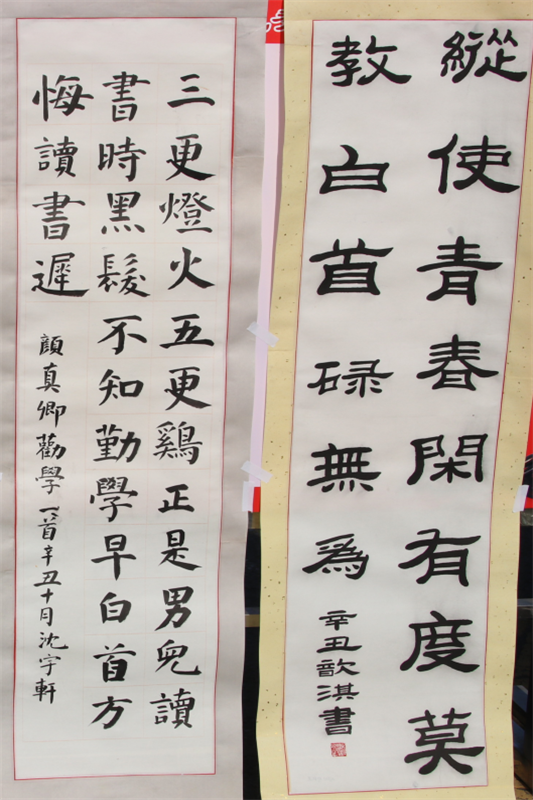 縱使青春閑有度莫
教白首碌無爲
辛丑歆淇書
三更燈火五更鷄正是男兒讀
書時黑髮不知勤學早白首方
悔讀書遲
顏真卿勸學一首辛丑十月沈宇軒